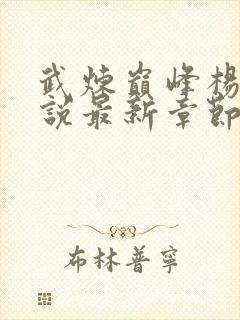 武煉巔峰楊
說最新章節
布林普寧